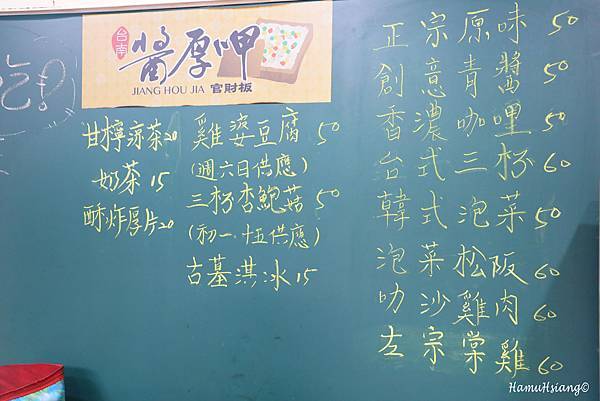 台南
醬厚呷
JIANG HOU JIA 官財板
甘檸涼茶20
奶茶 15
酥炸厚片20
雞婆豆腐 50
(週六日供應)
三杯杏鮑菇 50
(初一、十五供應)
古墓淇冰 15
正宗原味 50
創意青醬 50
香濃咖哩 50
台式三杯 60
韓式泡菜 50
泡菜松阪 60
叻沙雞肉 60
左宗棠雞 60
HamuHsiang©